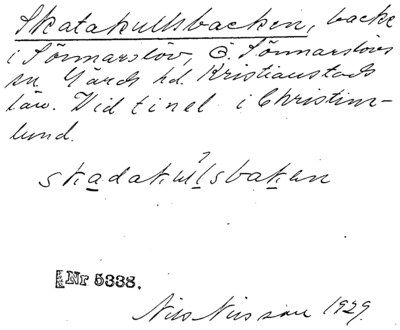 Skatakullsbacken, backe
i Sönnarslöv, Ö. Sönnarslövs
sn Gärds hd. Kristianstads
län. Vid tinel i Christin-
lund.
skadakulsbaken
Nr 5338.
Nils Nilsson 1929.